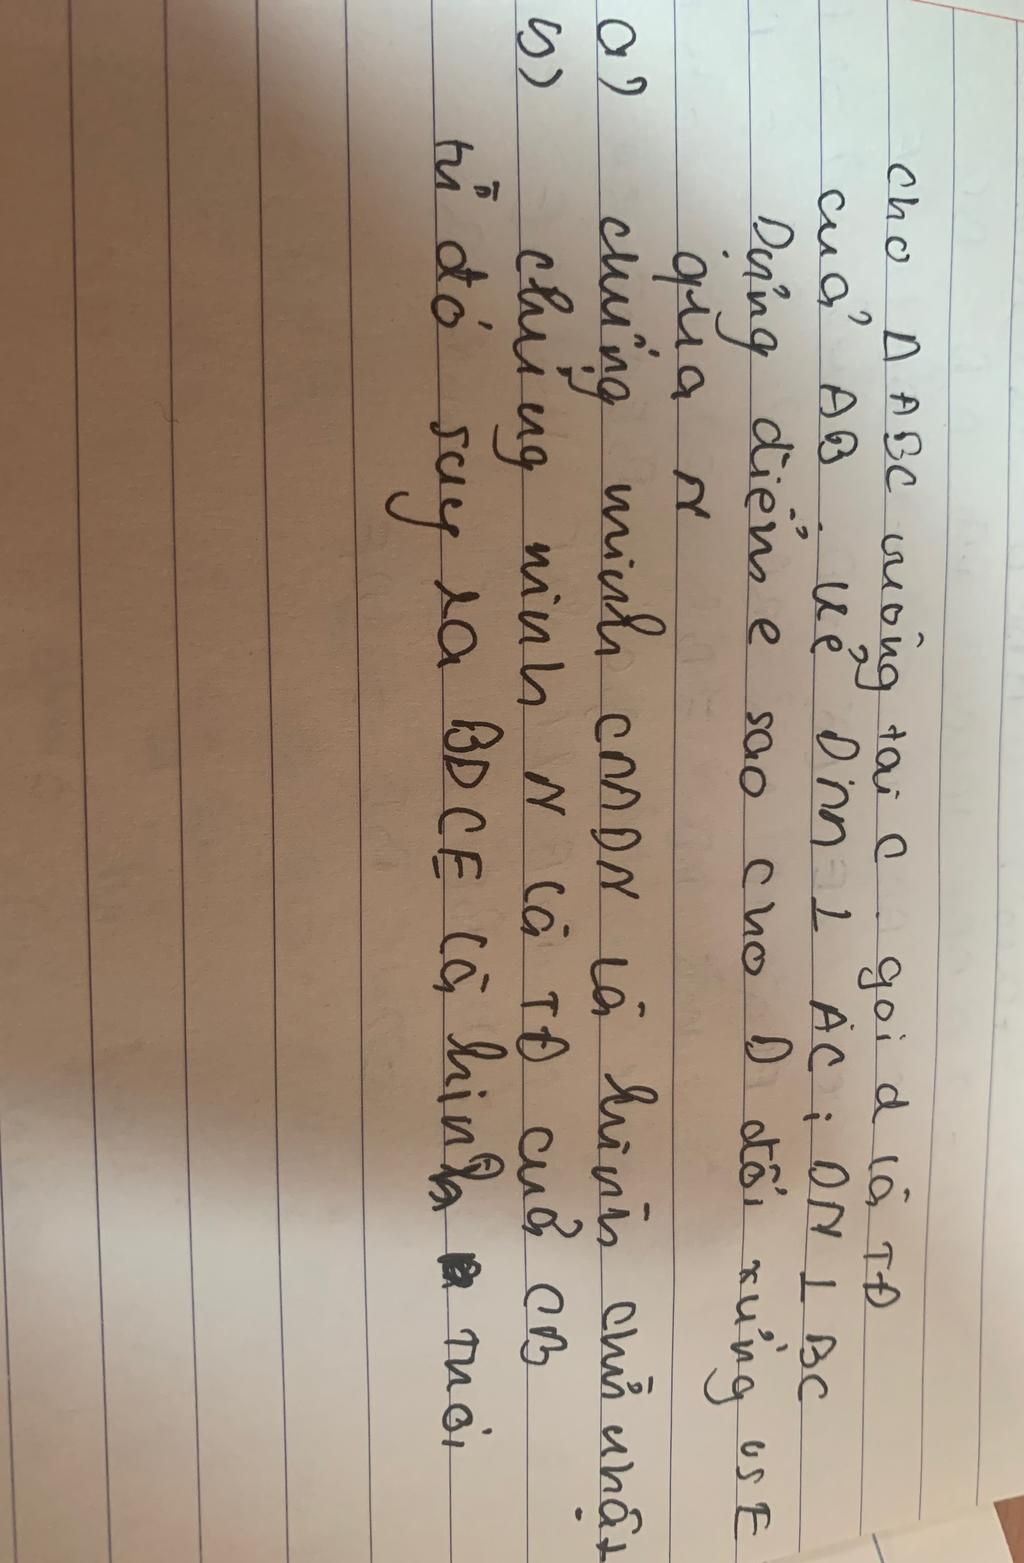 cho Δ ABC vuông tại C. gọi d là TĐ
của AB. kẻ Dm ⊥ AC; DN ⊥ BC
Dựng điểm e sao cho D đối xứng vs E
qua N
a) chứng minh CMDN là hình chữ nhật
b) chứng minh N là TĐ của CB
từ đó suy ra BDCE là hình thoi